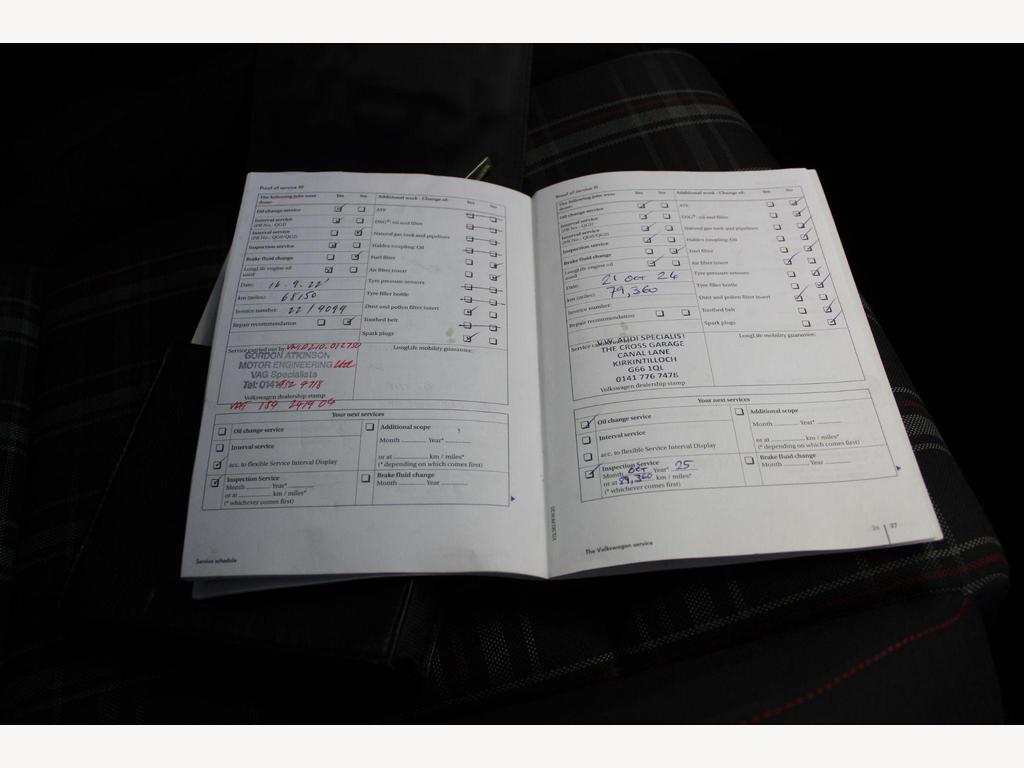 Proof of service 10
The following jobs were done:
Yes No
Additional work - Change of:
Yes No
Oil change service
ATF
Interval service
(PR No.: QG1)
DSG®: oil and filter
Interval service
(PR No.: QG0/QG2)
Natural gas tank and pipelines
Inspection service
Haldex coupling: Oil
Brake fluid change
Fuel filter
LongLife engine oil used
Air filter insert
Date: 16.9.22
Tyre pressure sensors
km (miles): 68150
Tyre filler bottle
Invoice number: 22/4044
Dust and pollen filter insert
Repair recommendation
Toothed belt
Spark plugs
Service carried out by:
LongLife mobility guarantee:
GORDON ATKINSON
MOTOR ENGINEERING Ltd
VAG Specialists
Tel: 0141
Volkswagen dealership stamp
VAT 184 2419 04
Your next services
Oil change service
Additional scope
Month Year*
Interval service
or at km / miles*
(* depending on which comes first)
acc. to flexible Service Interval Display
Inspection Service
Brake fluid change
Month Year*
Month Year
or at km / miles*
(* whichever comes first)
Service schedule
Proof of service 11
The following jobs were done:
Yes No
Additional work - Change of:
Yes No
Oil change service
ATF
Interval service
(PR No.: QG1)
DSG®: oil and filter
Interval service
(PR No.: QG0/QG2)
Natural gas tank and pipelines
Inspection service
Haldex coupling: Oil
Brake fluid change
Fuel filter
LongLife engine oil used
Air filter insert
Date: 21 Oct 24
Tyre pressure sensors
km (miles): 79,360
Tyre filler bottle
Invoice number:
Dust and pollen filter insert
Repair recommendation
Toothed belt
Spark plugs
LongLife mobility guarantee:
V.W. AUDI SPECIALIST
THE CROSS GARAGE
CANAL LANE
KIRKINTILLOCH
G66 1QL
0141 776 7478
Volkswagen dealership stamp
Your next services
Oil change service
Additional scope
Month Year*
Interval service
or at km / miles*
(* depending on which comes first)
acc. to flexible Service Interval Display
Inspection Service
Brake fluid change
Month Oct Year* 25
Month Year
or at 89,360 km / miles*
(* whichever comes first)
The Volkswagen service
26 | 27